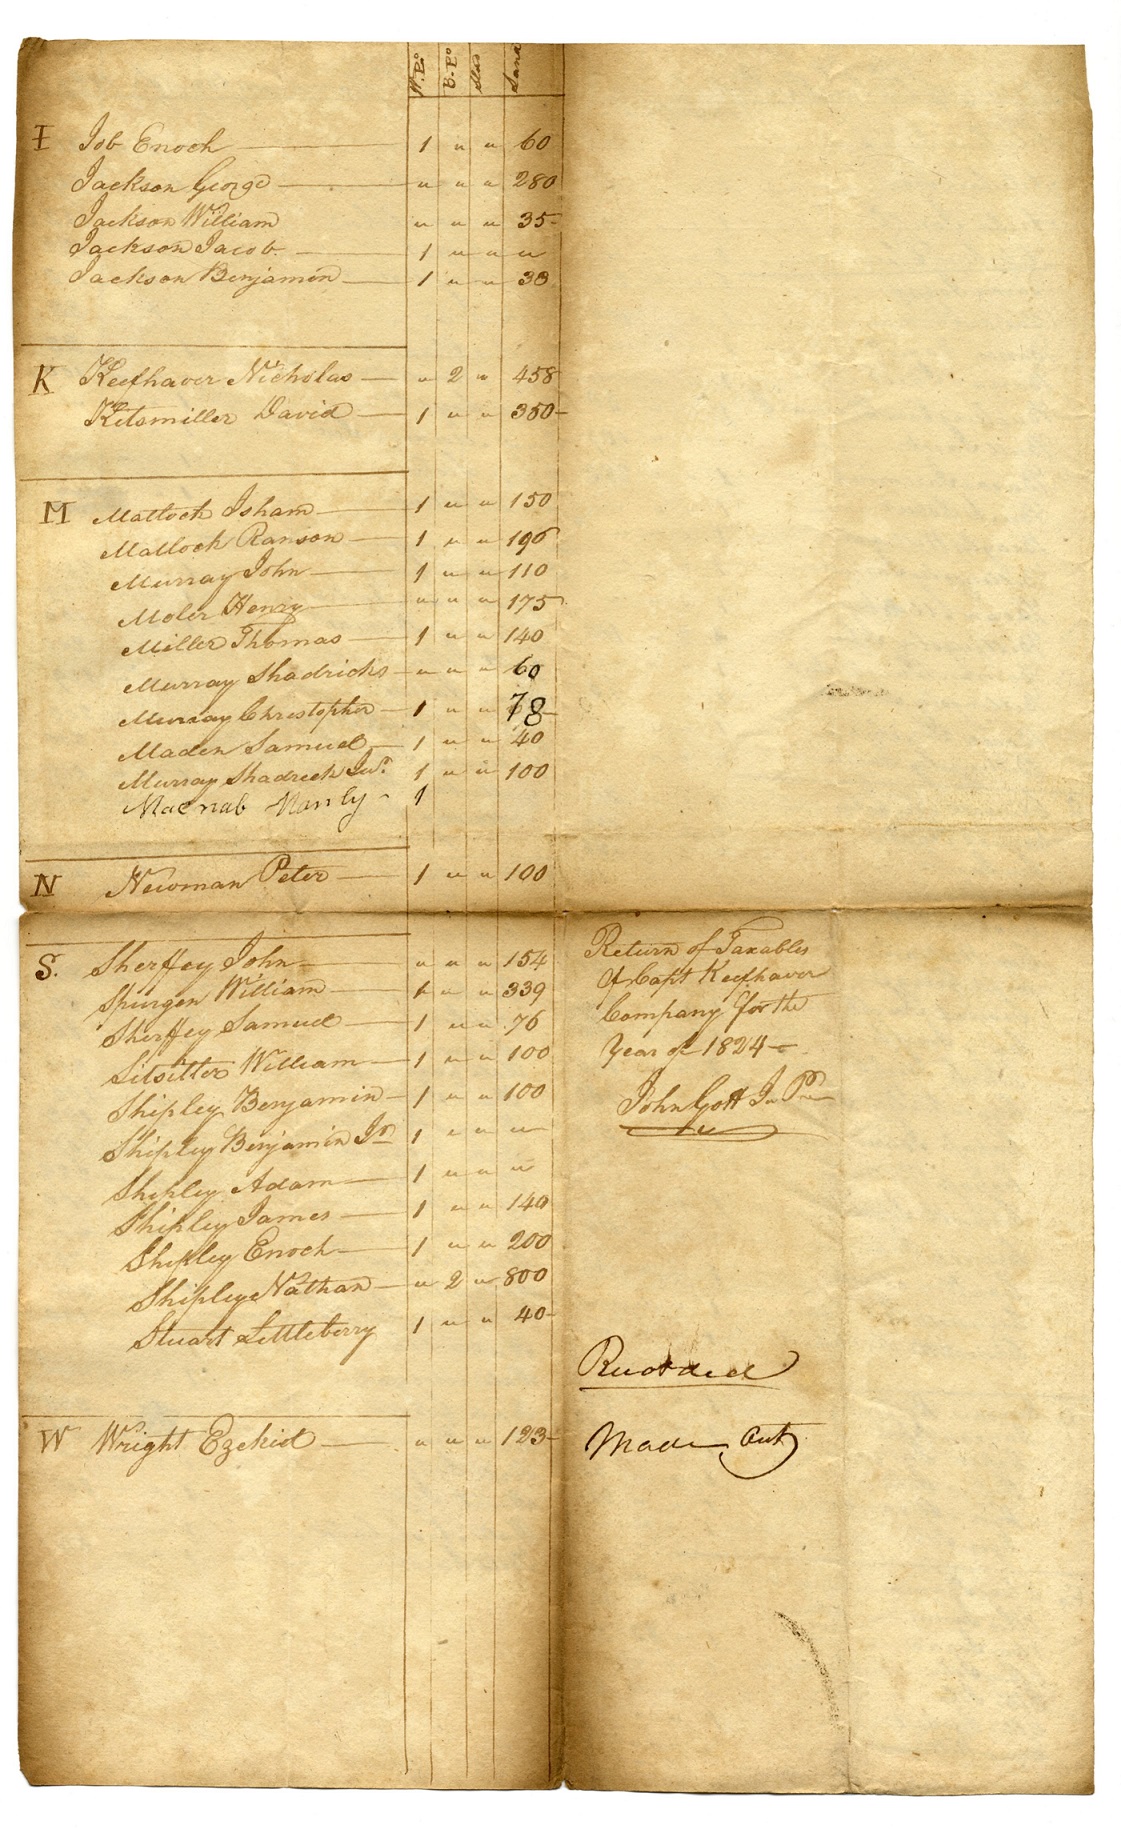 W. Po B. Po Stud Land
I Job Enoch 1 " " 60
Jackson George " " " 280
Jackson William " " " 35
Jackson Jacob 1 " " "
Jackson Benjamin 1 " " 38
K Keefhaver Nicholas " 2 " 458
Kitsmiller David 1 " " 350
M Matlock Isham 1 " " 150
Matlock Ranson 1 " " 196
Murray John 1 " " 110
Moler Henry " " " 175
Miller Thomas 1 " " 140
Murray Shadricks " " " 60
Murray Christopher 1 " " 78
Maden Samuel 1 " " 40
Murray Shadrech Junr 1 " " 100
Macnab 1
N Newman Peter 1 " " 100
S. Sherffey John " " " 154
Spurgen William 1 " " 339
Sherffey Samuel 1 " " 76
Sitsitter William 1 " " 100
Shipley Benjamin 1 " " 100
Shipley Benjamin Jr 1 " " "
Shipley Adam 1 " " "
Shipley James 1 " " 140
Shipley Enoch 1 " " 200
Shipley Nathan " 2 " 800
Stuart Littleberry 1 " " 40
W Wright Ezekiel " " " 123
Return of Taxables
of Capt Keefhaver
Company for the
Year of 1824
John Gott Ju Pe
Recorded
Made Out